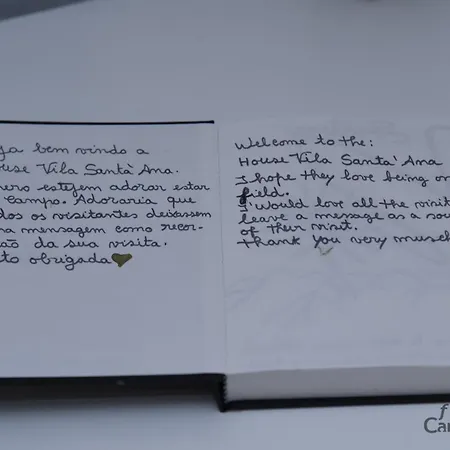 ja bem vindo a
ouse Vila Santà Ana.
ero estejem adorar estar
campo. Adoraria que
dos os visitantes deixassem
ma mensagem como recor-
ção da sua visita.
to obrigada
Welcome to the:
House Vila Santa' Ana
I hope they love being on
field.
I would love all the visit
leave a message as a sou
of their visit.
thank you very musch
f
Car